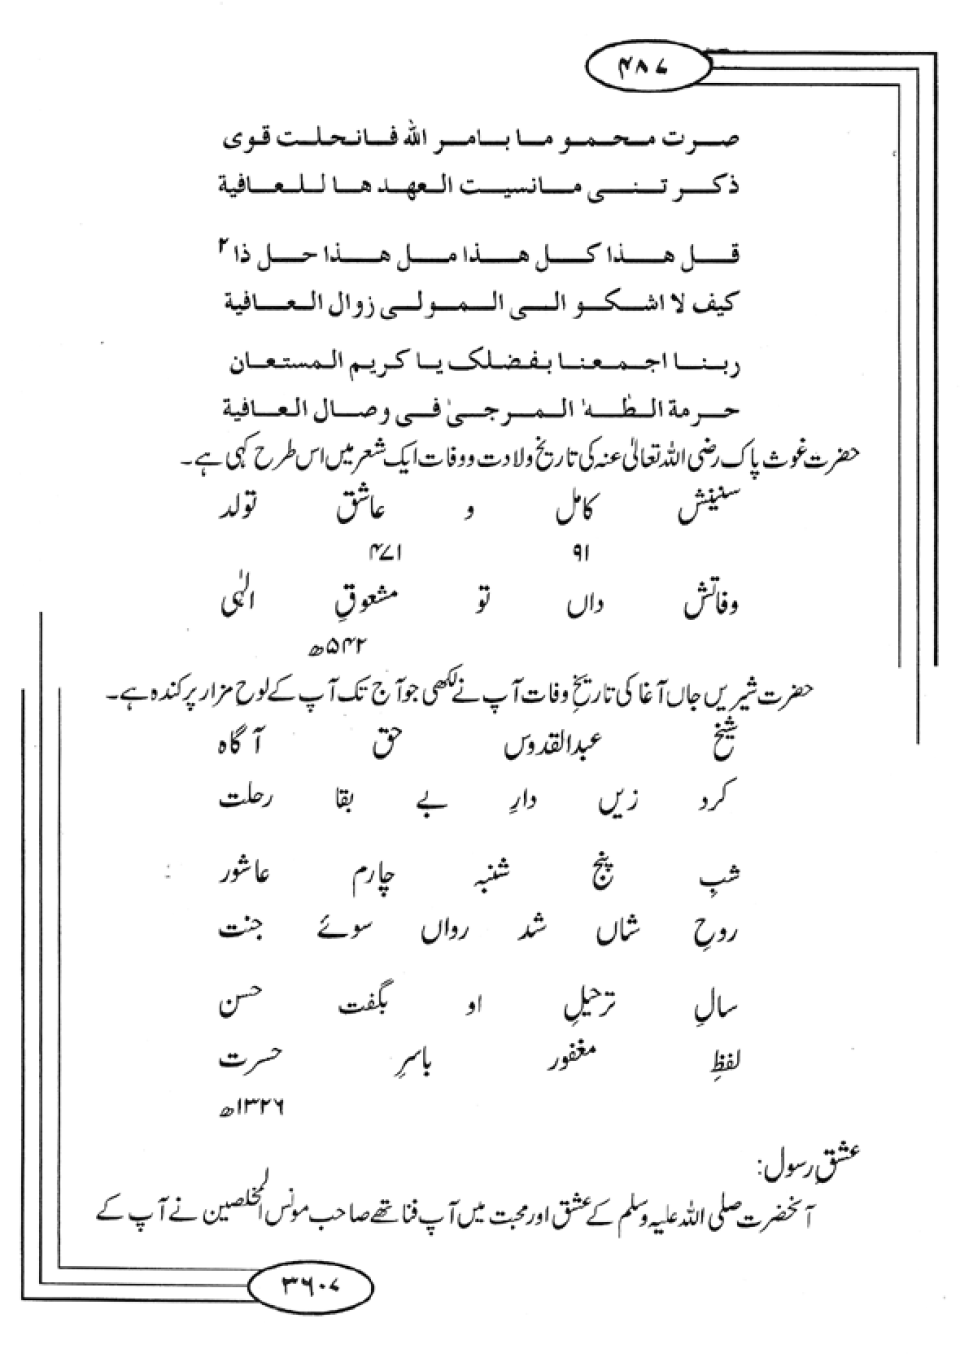 ۴۸۷
صرت محمو ما بامر الله فانحلت قوی
ذکر تنی مانسیت العهد ها للعافیة
قل هذا کل هذا مل هذا حل ذا ۲
کیف لا اشکو الی المولی زوال العافیة
ربنا اجمعنا بفضلک یا کریم المستعان
حرمة الطٰهٰ المرجیٰ فی وصال العافیة
حضرت غوث پاک رضی اللہ تعالیٰ عنہ کی تاریخ ولادت و وفات ایک شعر میں اس طرح کہی ہے۔
سنینش کامل و عاشق تولد
۹۱ ۴۷۱
وفاتش داں تو مشعوقِ الٰہی
۵۴۲ھ
حضرت شیریں جاں آغا کی تاریخِ وفات آپ نے لکھی جو آج تک آپ کے لوح مزار پر کندہ ہے۔
شیخ عبدالقدوس حق آگاہ
کرد زیں دارِ بے بقا رحلت
شبِ پنج شنبہ چارم عاشور
روحِ شاں شد رواں سوئے جنت
سالِ ترحیلِ او بگفت حسن
لفظِ مغفور باسرِ حسرت
۱۳۲۶ھ
عشقِ رسول:
آنحضرت صلی اللہ علیہ وسلم کے عشق اور محبت میں آپ فنا تھے صاحب مونس المخلصین نے آپ کے
۳۶۰۷